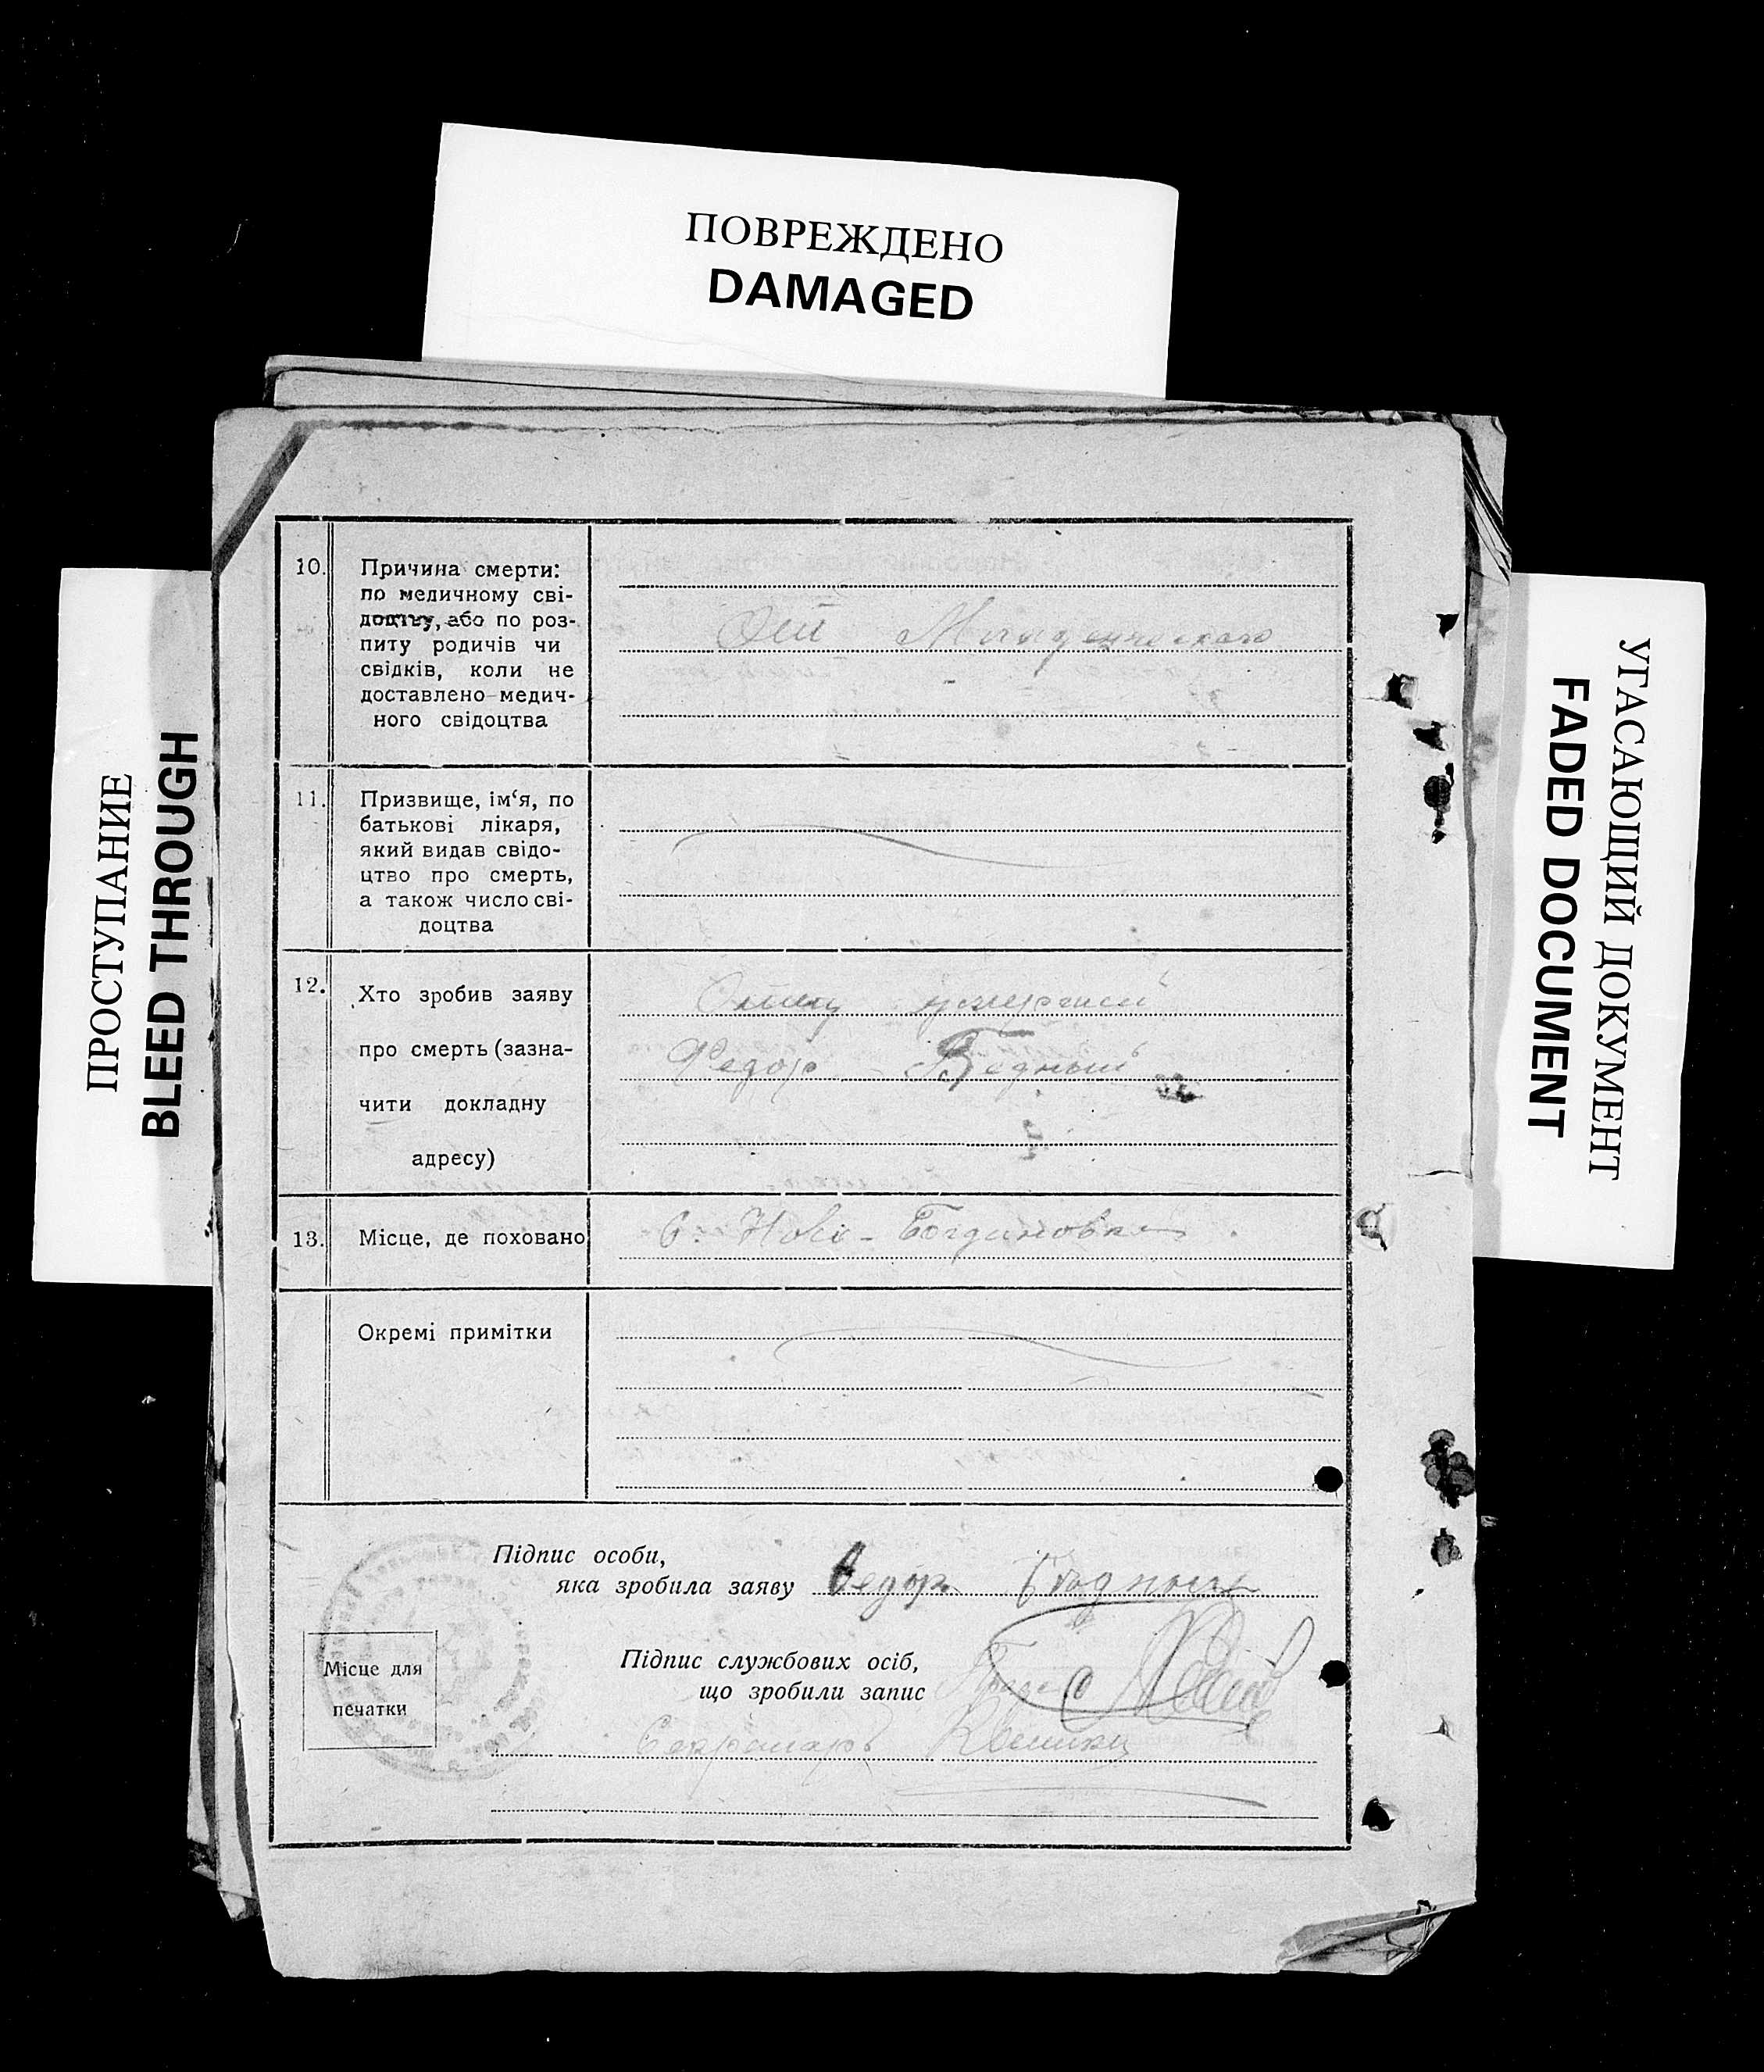 ПОВРЕЖДЕНО
DAMAGED
ПРОСТУПАНИЕ
BLEED THROUGH
УГАСАЮЩИЙ ДОКУМЕНТ
FADED DOCUMENT
10.
Причина смерти:
по медичному сві-
доцтву, або по роз-
питу родичів чи
свідків, коли не
доставлено медич-
ного свідоцтва
От Младенческаго
11.
Призвище, ім‘я, по
батькові лікаря,
який видав свідо-
цтво про смерть,
а також число сві-
доцтва
12.
Хто зробив заяву
про смерть (зазна-
чити докладну
адресу)
Отец умершей
Федор Бедный
13.
Місце, де поховано
С. Ново-Богдановка
Окремі примітки
Підпис особи,
яка зробила заяву Федор
Підпис службових осіб,
що зробили запис
Місце для
печатки
Секретарь